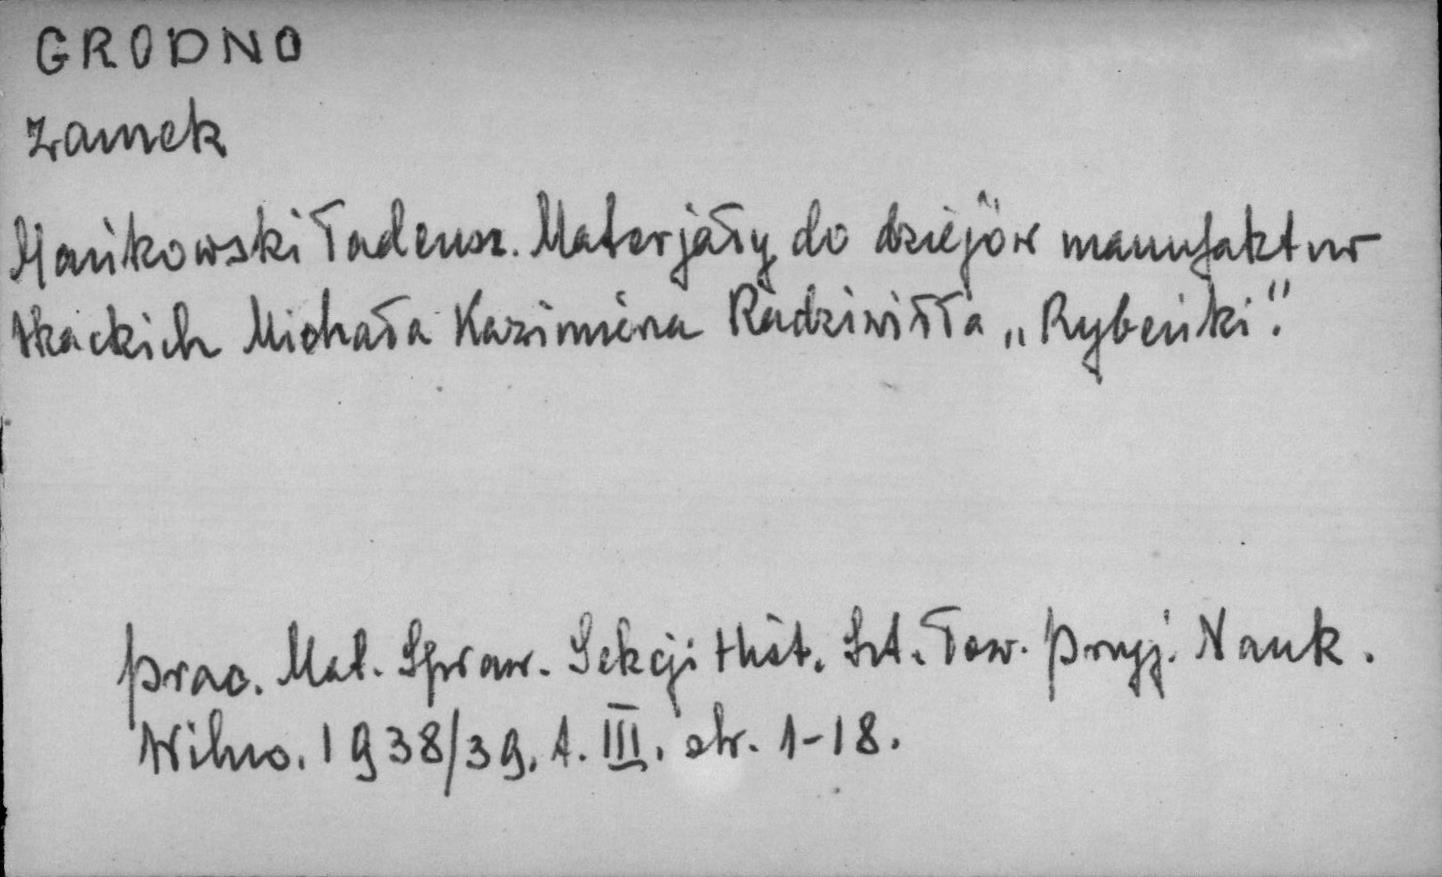 GRODNO
zamek
Mańkowski Tadeusz. Materjały do dziejów manufaktur
tkackich Michała Kazimierza Radziwiłła „Rybeńki".
Prac. Mat. Spraw. Sekcji Hist. Szt. Tow. Przyj. Nauk.
Wilno. 1938/39. t. III. str. 1-18.